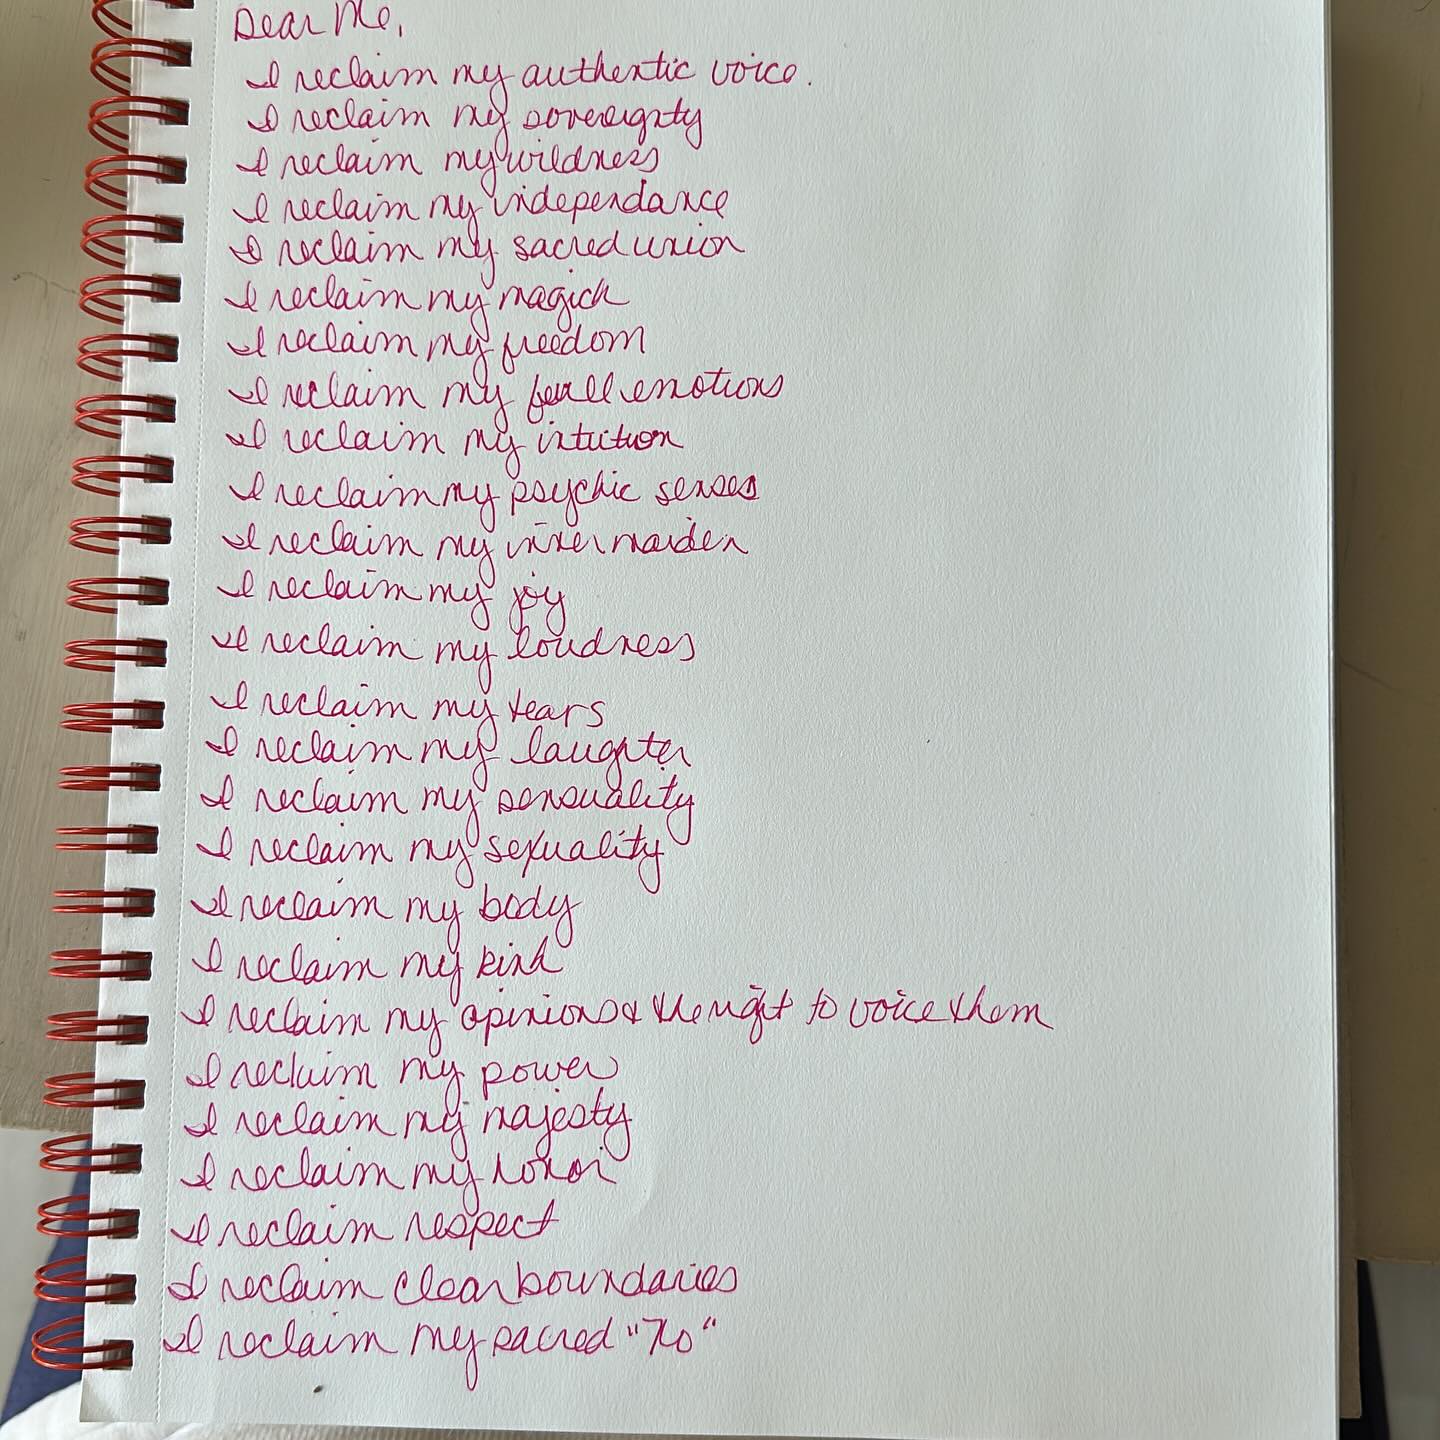 Dear Me,
I reclaim my authentic voice.
I reclaim my sovereignty
I reclaim my wildness
I reclaim my independance
I reclaim my sacred union
I reclaim my magick
I reclaim my freedom
I reclaim my full emotions
I reclaim my intuition
I reclaim my psychic senses
I reclaim my inner maiden
I reclaim my joy
I reclaim my loudness
I reclaim my tears
I reclaim my laughter
I reclaim my sensuality
I reclaim my sexuality
I reclaim my body
I reclaim my
I reclaim my opinions & the right to voice them
I reclaim my power
I reclaim my majesty
I reclaim my honor
I reclaim respect
I reclaim clear boundaries
I reclaim my sacred "No"